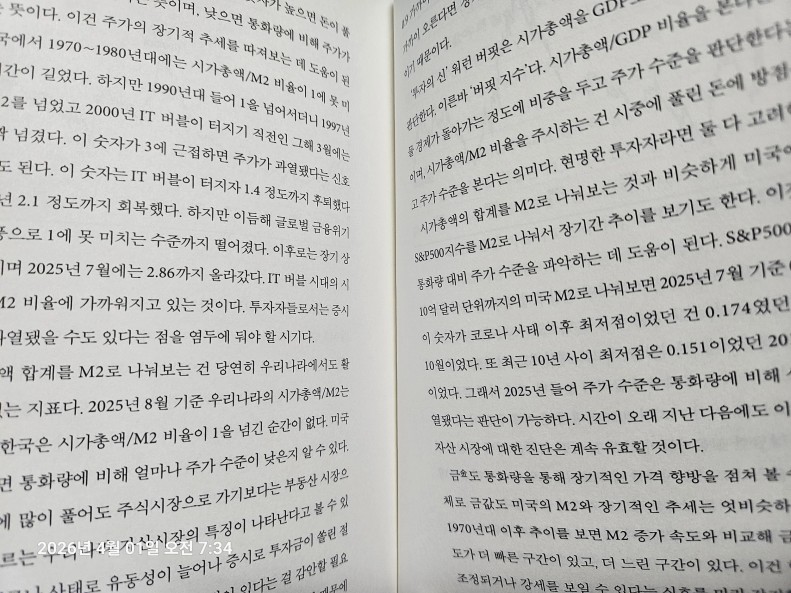 뜻이며, 낮으면 통화량에 비해 주가가
뜻이다. 이건 주가의 장기적 추세를 따져보는 데 도움이 된
국에서 1970~1980년대에는 시가총액/M2 비율이 1에 못 미
간이 길었다. 하지만 1990년대 들어 1을 넘어서더니 1997년
2를 넘었고 2000년 IT 버블이 터지기 직전인 그해 3월에는
넘겼다. 이 숫자가 3에 근접하면 주가가 과열됐다는 신호
도 된다. 이 숫자는 IT 버블이 터지자 1.4 정도까지 후퇴했다
년 2.1 정도까지 회복했다. 하지만 이듬해 글로벌 금융위기
풍으로 1에 못 미치는 수준까지 떨어졌다. 이후로는 장기 상
며 2025년 7월에는 2.86까지 올라갔다. IT 버블 시대의 시
M2 비율에 가까워지고 있는 것이다. 투자자들로서는 증시
과열됐을 수도 있다는 점을 염두에 둬야 할 시기다.
액 합계를 M2로 나눠보는 건 당연히 우리나라에서도 활
있는 지표다. 2025년 8월 기준 우리나라의 시가총액/M2는
한국은 시가총액/M2 비율이 1을 넘긴 순간이 없다. 미국
면 통화량에 비해 얼마나 주가 수준이 낮은지 알 수 있다.
에 많이 풀어도 주식시장으로 가기보다는 부동산 시장으
르는 우리나라 자산시장의 특징이 나타난다고 볼 수 있
사태로 유동성이 늘어나 증시로 투자금이 쏠린 절
있다는 걸 감안할 필요
가 오른다면
이기 때문이다.
'투자의 신' 워런 버핏은 시가총액을 GDP
판단한다. 이른바 '버핏 지수'다. 시가총액/GDP 비율을 본다는
물 경제가 돌아가는 정도에 비중을 두고 주가 수준을 판단한다는
이며, 시가총액/M2 비율을 주시하는 건 시중에 풀린 돈에 방점
고 주가 수준을 본다는 의미다. 현명한 투자자라면 둘 다 고려
시가총액의 합계를 M2로 나눠보는 것과 비슷하게 미국에
S&P500지수를 M2로 나눠서 장기간 추이를 보기도 한다. 이
통화량 대비 주가 수준을 파악하는 데 도움이 된다. S&P500
10억 달러 단위까지의 미국 M2로 나눠보면 2025년 7월 기준
이 숫자가 코로나 사태 이후 최저점이었던 건 0.174였던
10월이었다. 또 최근 10년 사이 최저점은 0.151이었던 20
이었다. 그래서 2025년 들어 주가 수준은 통화량에 비해
열됐다는 판단이 가능하다. 시간이 오래 지난 다음에도 이
자산 시장에 대한 진단은 계속 유효할 것이다.
금金도 통화량을 통해 장기적인 가격 향방을 점쳐 볼 수
체로 금값도 미국의 M2와 장기적인 추세는 엇비슷하
1970년대 이후 추이를 보면 M2 증가 속도와 비교해 금
도가 더 빠른 구간이 있고, 더 느린 구간이 있다. 이건
조정되거나 강세를 보일 수 있다는 신호를
2026년 4월 01일 오전 7:34